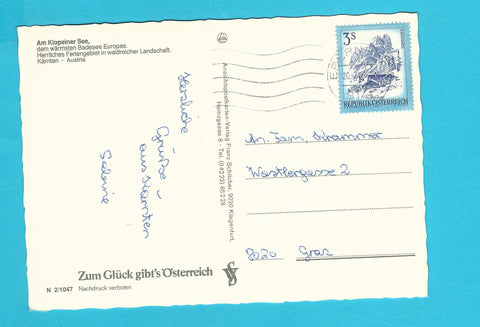 Am Klopeiner See,
dem wärmsten Badesee Europas.
Herrliches Feriengebiet in waldreicher Landschaft.
Kärnten – Austria
Herzliche
Grüße
aus Kärnten
Sabine
Zum Glück gibt's Österreich
N 2/1047 Nachdruck verboten
Ansichtspostkarten-Verlag Franz Schilcher, 9020 Klagenfurt,
Heinzgasse 8 - Tel. (04222) 85228
3S
REPUBLIK ÖSTERREICH
An Fam. Krammer
Wastlergasse 2
8020 Graz